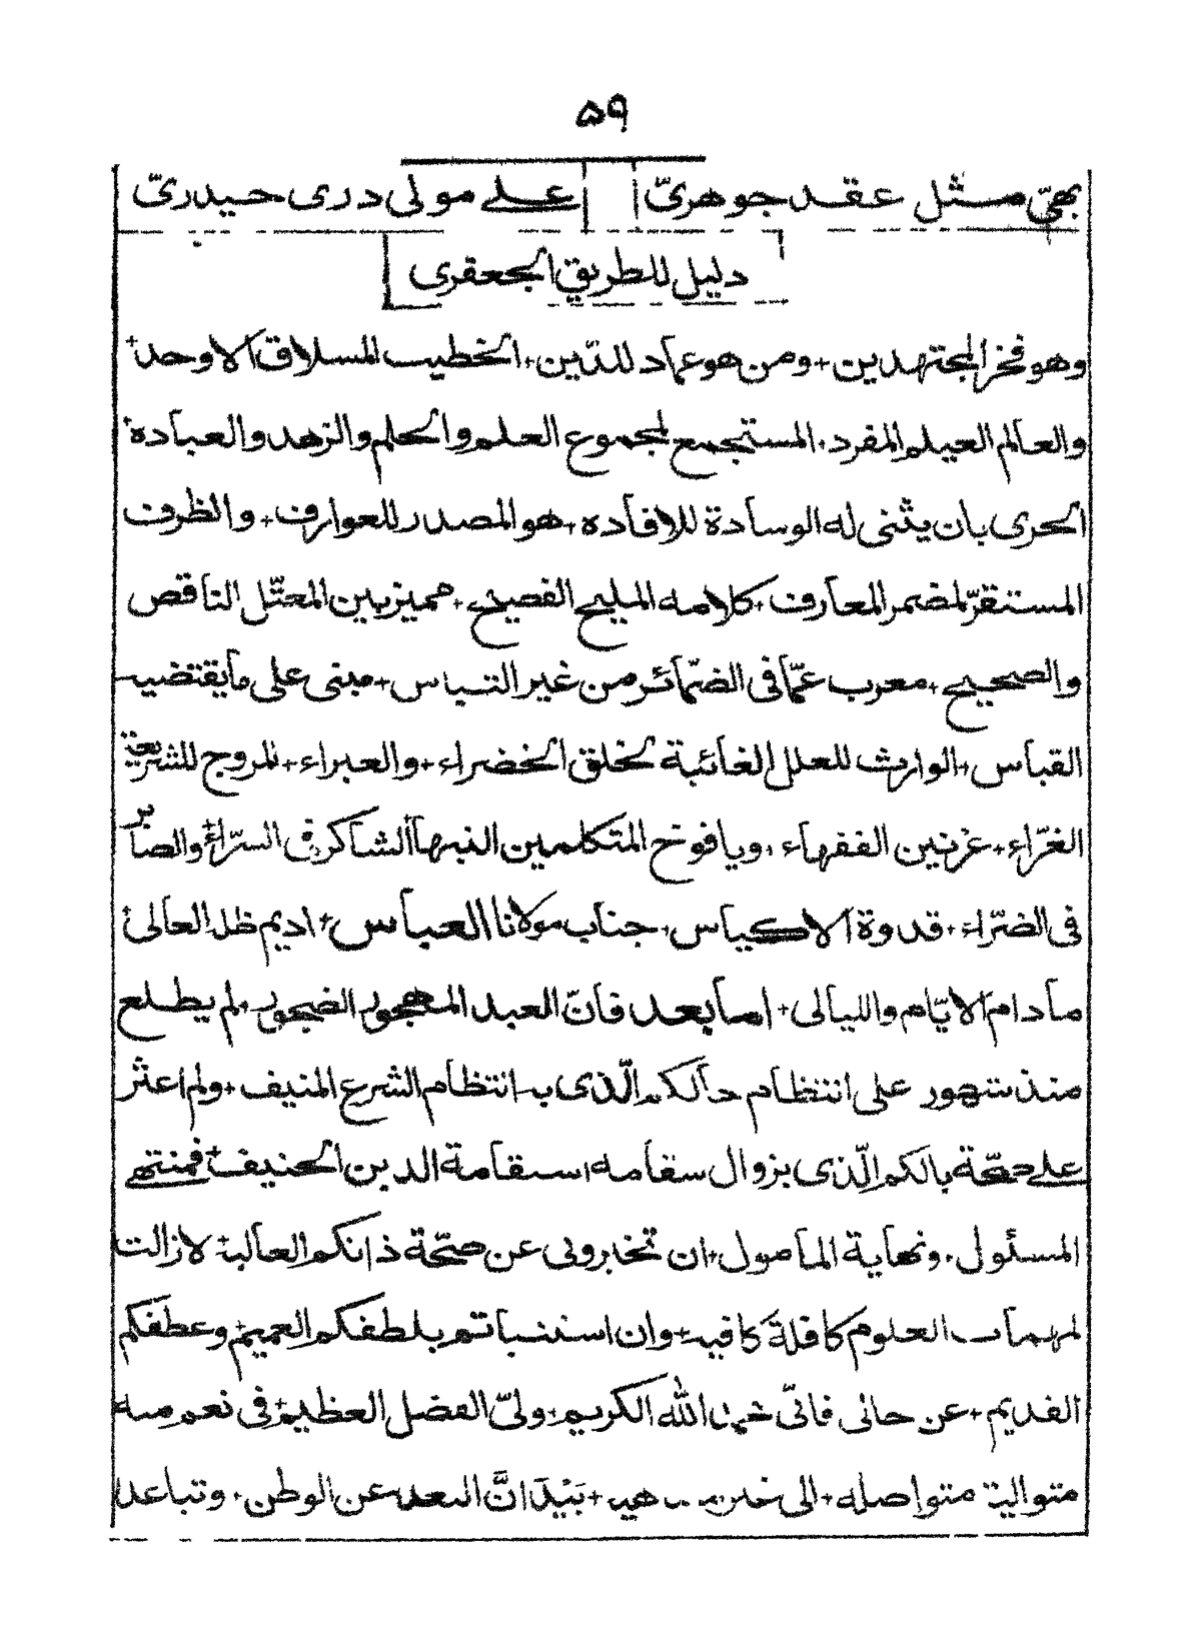 ۵۹
بهیّ مثل عقد جوهریّ علے مولی دری حیدریّ
دلیل للطریق الجعفری
وهو فخر المجتهدین + ومن هو عماد للدّین + الخطیب المسلاق الاوحد +
والعالم العیلم المفرد + المستجمع لمجموع العلم والحلم والزهد والعبادة +
الحری بان یثنی له الوسادة للافاده + هو المصدر للعوارف + والظرف
المستقرّ لمضمر المعارف + کلامه الملیح الفصیح + ممیز بین المعتّل الناقص
والصحیح + معرب عمّا فی الضمّائر من غیر التباس + مبنی علی ما یقتضیه
القیاس + الوارث للعلل الغائبة لخلق الخضراء + والغبراء + المروج للشریعة
الغرّاء + عرنین الفقهاء + ویافوخ المتکلمین النبهاء الشاکر فی السرّاء + والصابر
فی الضرّاء + قدوة الاکیاس + جناب مولانا العباس + ادیم ظله العالی +
مادام الایّام واللیالی + اما بعد فانّ العبد المهجور الضجور + لم یطلع
منذ شهور علی انتظام حالکم الّذی به انتظام الشرع المنیف + ولم اعثر
علے صحّة بالکم الّذی بزوال سقامه استقامة الدین الحنیف + فمنتهے
المسئول + ونهایة المأمول + ان تخبرونی عن صحّة ذاتکم العالیة لا زالت
لمهمات العلوم کافلة کافیه + وان استنباتم بلطفکم العمیم + وعطفکم
القدیم + عن حالی فانّی بحمد الله الکریم + ولیّ الفضل العظیم + فی نعم منه
متوالیة متواصله + الی + بَیْدَ انَّ البعد عن الوطن + وتباعد